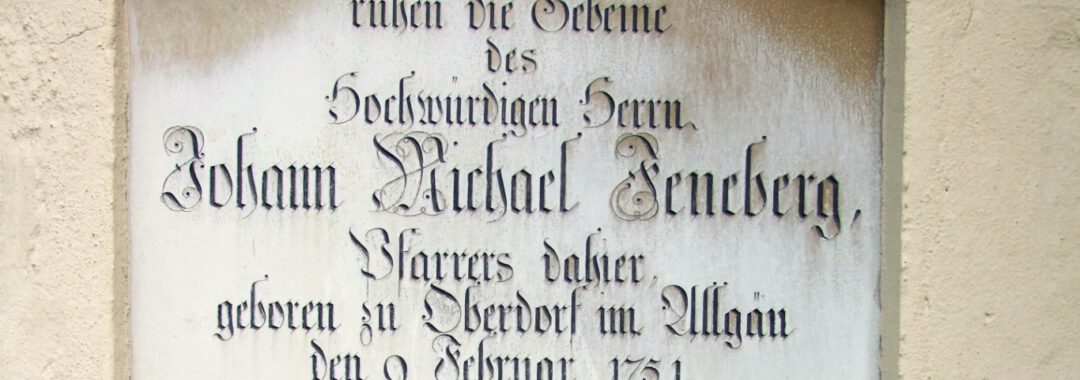 ruhen die Gebeine
des
Hochwürdigen Herrn
Johann Michael Feneberg,
Pfarrers dahier,
geboren zu Oberdorf im Allgäu
den 9. Februar 1751